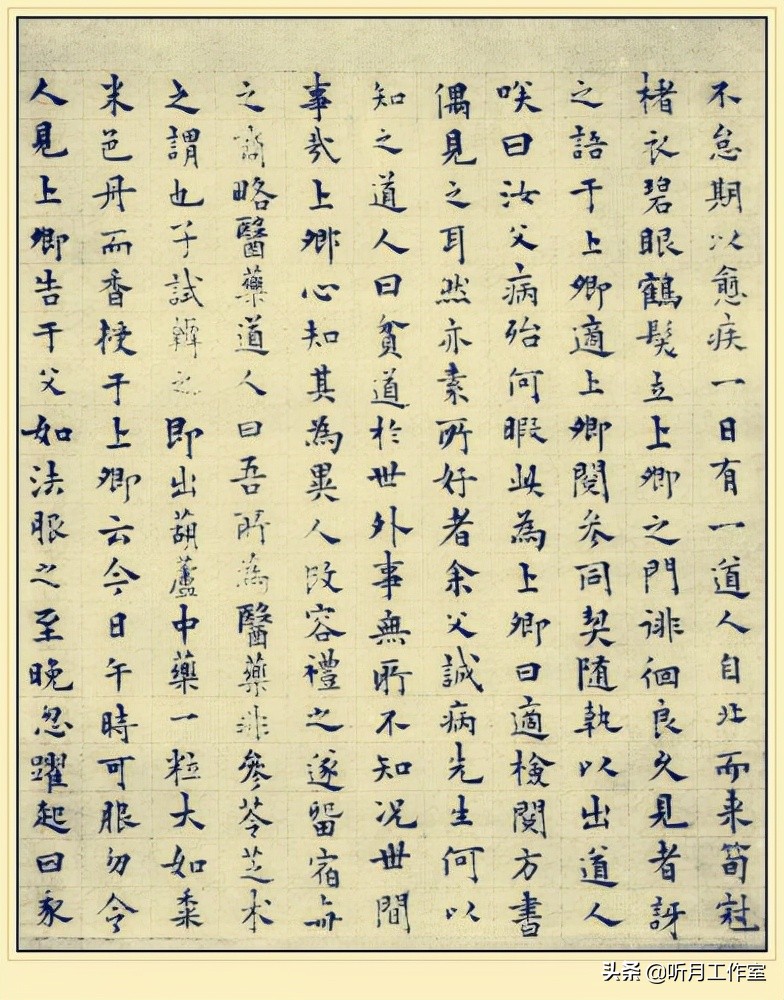 不怠期以愈疾一日有一道人自北而来筍冠
楮衣碧眼鶴髮立上卿之門誹徊良久見者訝
之語于上卿適上卿閱参同契随執以出道人
咲曰汝父病殆何暇此為上卿曰適檢閱方書
偶見之耳然亦素所好者余父誠病先生何以
知之道人曰貧道於世外事無所不知况世間
事哉上卿心知其為異人改容禮之遂留宿与
之商略醫藥道人曰吾所為醫藥非參苓芝术
之謂也子試辨之即出葫蘆中藥一粒大如黍
米色丹而香授于上卿云今日午時可服勿令
人見上卿告于父如法服之至晚忽躍起曰家
头条 @听月工作室